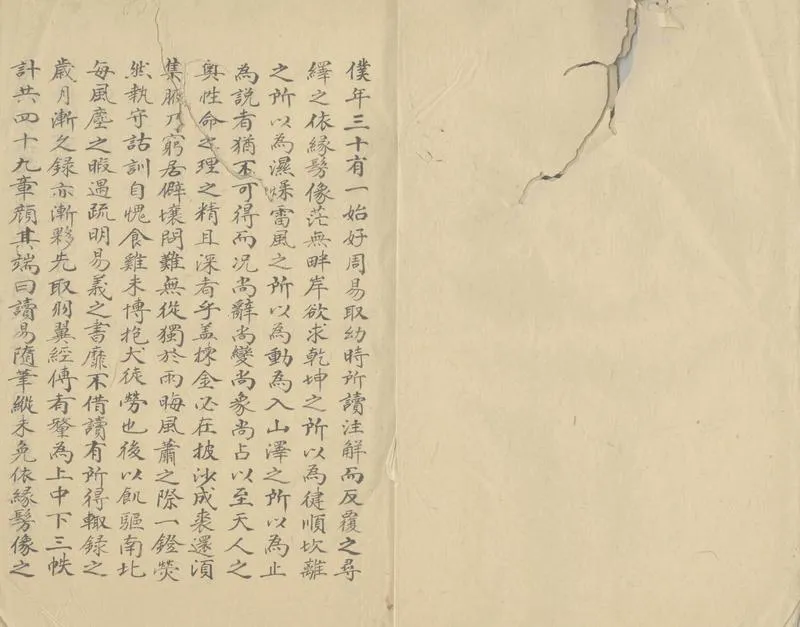 僕年三十有一始好周易取幼時所讀注解而反覆之尋
繹之依緣髣像茫無畔岸欲求乾坤之所以為健順坎離
之所以為濕燥雷風之所以為動為入山澤之所以為止
為說者猶不可得而况尚辭尚變尚象尚占以至天人之
奧性命之理之精且深者乎盖揀金必在披沙成裘還湏
集腋乃窮居僻壤問難無從獨於雨晦風蕭之際一鐙熒
然執守詁訓自愧食雞未博抱犬徒勞也後以飢驅南北
每風塵之暇遇疏明易義之書靡不借讀有所得輙録之
歲月漸久録亦漸夥先取羽翼經傳者釐為上中下三帙
計共四十九章顔其端曰讀易隨筆縱未免依緣髣像之